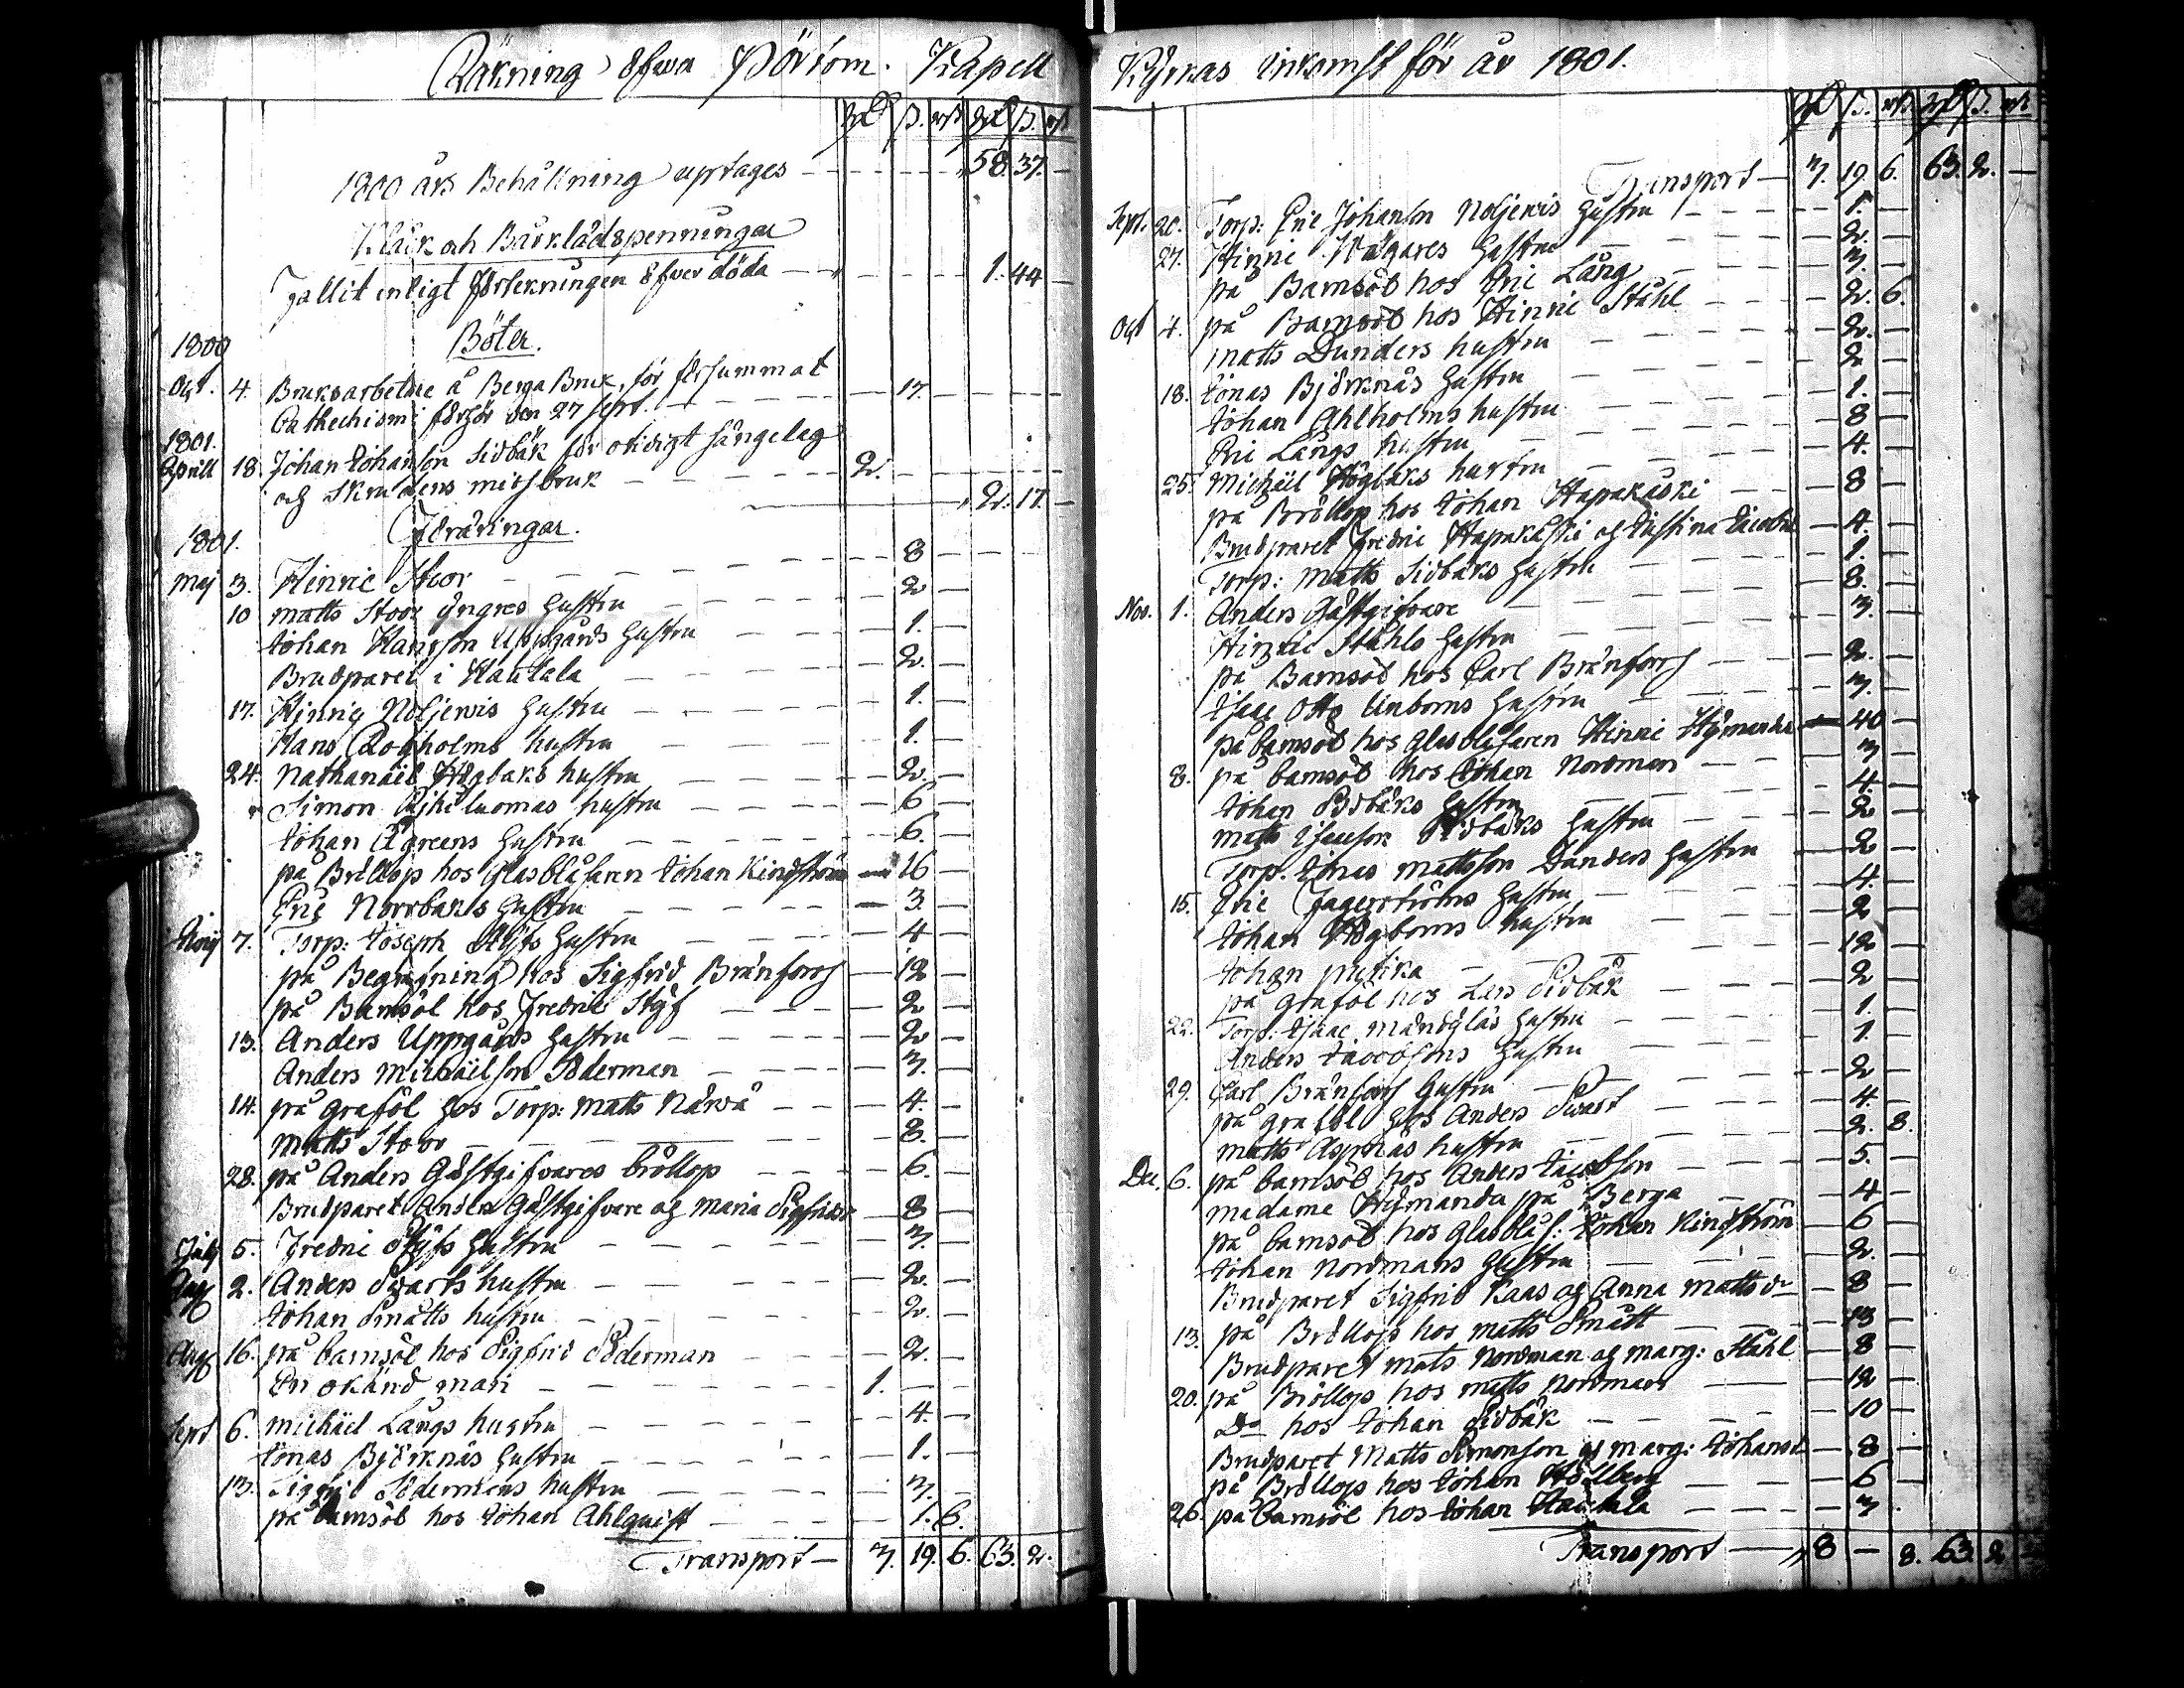 Räkning öfwer Pörtom Kapell
Rdr ß. rst Rdr ß. rst
1800 års Behållning uptages — 58. 37. —
Klåck och Bårklädspenningar
Fallit enligt förtekningen öfver döda — 1. 44 —
1800
Böter.
Oct. 4. Bruksarbetare å Berga Bruk, för försummat
Cathechismi förhör den 27 Sept. — 17. —
1801.
Aprill 18. Johan Johanson Sidbäk för otidigt sängelag
och Skrudens missbruk — 2. —
2. 17. —
1801. Föräringar.
Maj 3. Hinric Stoor — 8 —
10 Matts Stoor yngres hustru — 2 —
Johan Hansson Uppgårds hustru — 1. —
Brudparet i Hautala — 2. —
17. Hinric Noljervis hustru — 1. —
Hans Rogholms hustru — 1. —
24. Nathanaël Högbaks hustru — 2. —
Simon hustru — 6 —
Johan Ågreens hustru — 6. —
på Bröllop hos Glasblåsaren Johan Kindström — 16 —
Eric Norrbaks hustru — 3. —
7. Torp: Joseph Styfs hustru — 4 —
på Begrafning hos Sigfrid Bränfors — 12 —
på Barnsöl hos Fredric Styf — 2 —
13. Anders Uppgårds hustru — 2 —
Anders Michaëlson Söderman — 3. —
14. på grafööl hos Torp: Matts Närvä — 4. —
Matts Stoor — 8. —
28. på Anders Gästgifvares bröllop — 6. —
Brudparet Anders Gästgifvare og Maria Sigfrids — 8 —
July 5. Fredric Styfs hustru — 3. —
Aug 2. Anders Swarts hustru — 2. —
Johan Smätts hustru — 2. —
Aug 16. på barnsöl hos Sigfrid Söderman — 2. —
En okänd man — 1. —
Sept 6. Michäel Långs hustru — 4. —
Jonas Björknäs hustru — 1. —
13. Sigfrid Södermans hustru — 3. —
på barnsöl hos Johan Ahlquist — 1. 6.
Transport — 3. 19. 6. 63. 2.
Kyrkas inkomst för år 1801.
Rdr ß. rst Rdr ß. rst
Transport — 3. 19. 6. 63. 2. —
Sept. 20. Torp: Eric Johanson Noljervis hustru — 1. —
27. Hinric Wägares hustru — 2. —
på Barnsöl hos Eric Lång — 3. —
Oct 4. på Barnsöl hos Hinric Stähl — 2. 6.
Matts Dunders hustru — 2. —
18. Jonas Björknäs hustru — 2 —
Johan Ahlholms hustru — 1. —
Eric Långs hustru — 8 —
25. Michäel Högbaks hustru — 4. —
på Bröllop hos Johan Hapakoski — 8 —
Brudparet Fredric Hapakoski og Justina — 4. —
Torp: Matts Sidbaks hustru — 1. —
Nov. 1. Anders Gästgifvare — 8. —
Hinric Stähls hustru — 3. —
på Barnsöl hos Carl Bränfors — 2. —
Isaac Otto Linboms hustru — 3. —
på barnsöl hos Glasblåsaren Hinric — 40 —
8. på barnsöl hos Johan Nordman — 3 —
Johan hustru — 4. —
Matts Isacson Sidbäks hustru — 2 —
Torp. Jonas Mattsson Dunders hustru — 2 —
15. Eric Fagerströms hustru — 4. —
Johan Högboms hustru — 2 —
Johan — 12 —
på grafööl hos Lars Sidbäk — 2 —
22. Torp: Isaac hustru — 1. —
Anders Jacobsons hustru — 1. —
29. Carl Bränfors hustru — 2 —
på grafööl hos Anders Swart — 4. —
Matts Aspnäs hustru — 2. 8.
Dec. 6. på barnsöl hos Anders Jacobson — 5. —
Madame på Berga — 4 —
på barnsöl hos Glasblås: Johan Kindström — 6 —
Johan Nordmans hustru — 2. —
Brudparet Sigfrid Kaas og Anna Mattsdr — 8 —
13. på Bröllop hos Matts Smått — 13 —
Brudparet Mats Nordman og Marg: Stähl — 8 —
20. på Bröllop hos Matts Nordman — 12 —
Do hos Johan Sidbäk — 10 —
Brudparet Matts Simonson og Marg: Johansd — 8 —
på Bröllop hos Johan — 6 —
26. på barnsöl hos Johan Hautala — 3 .
Transport — 8 — 8. 63. 2